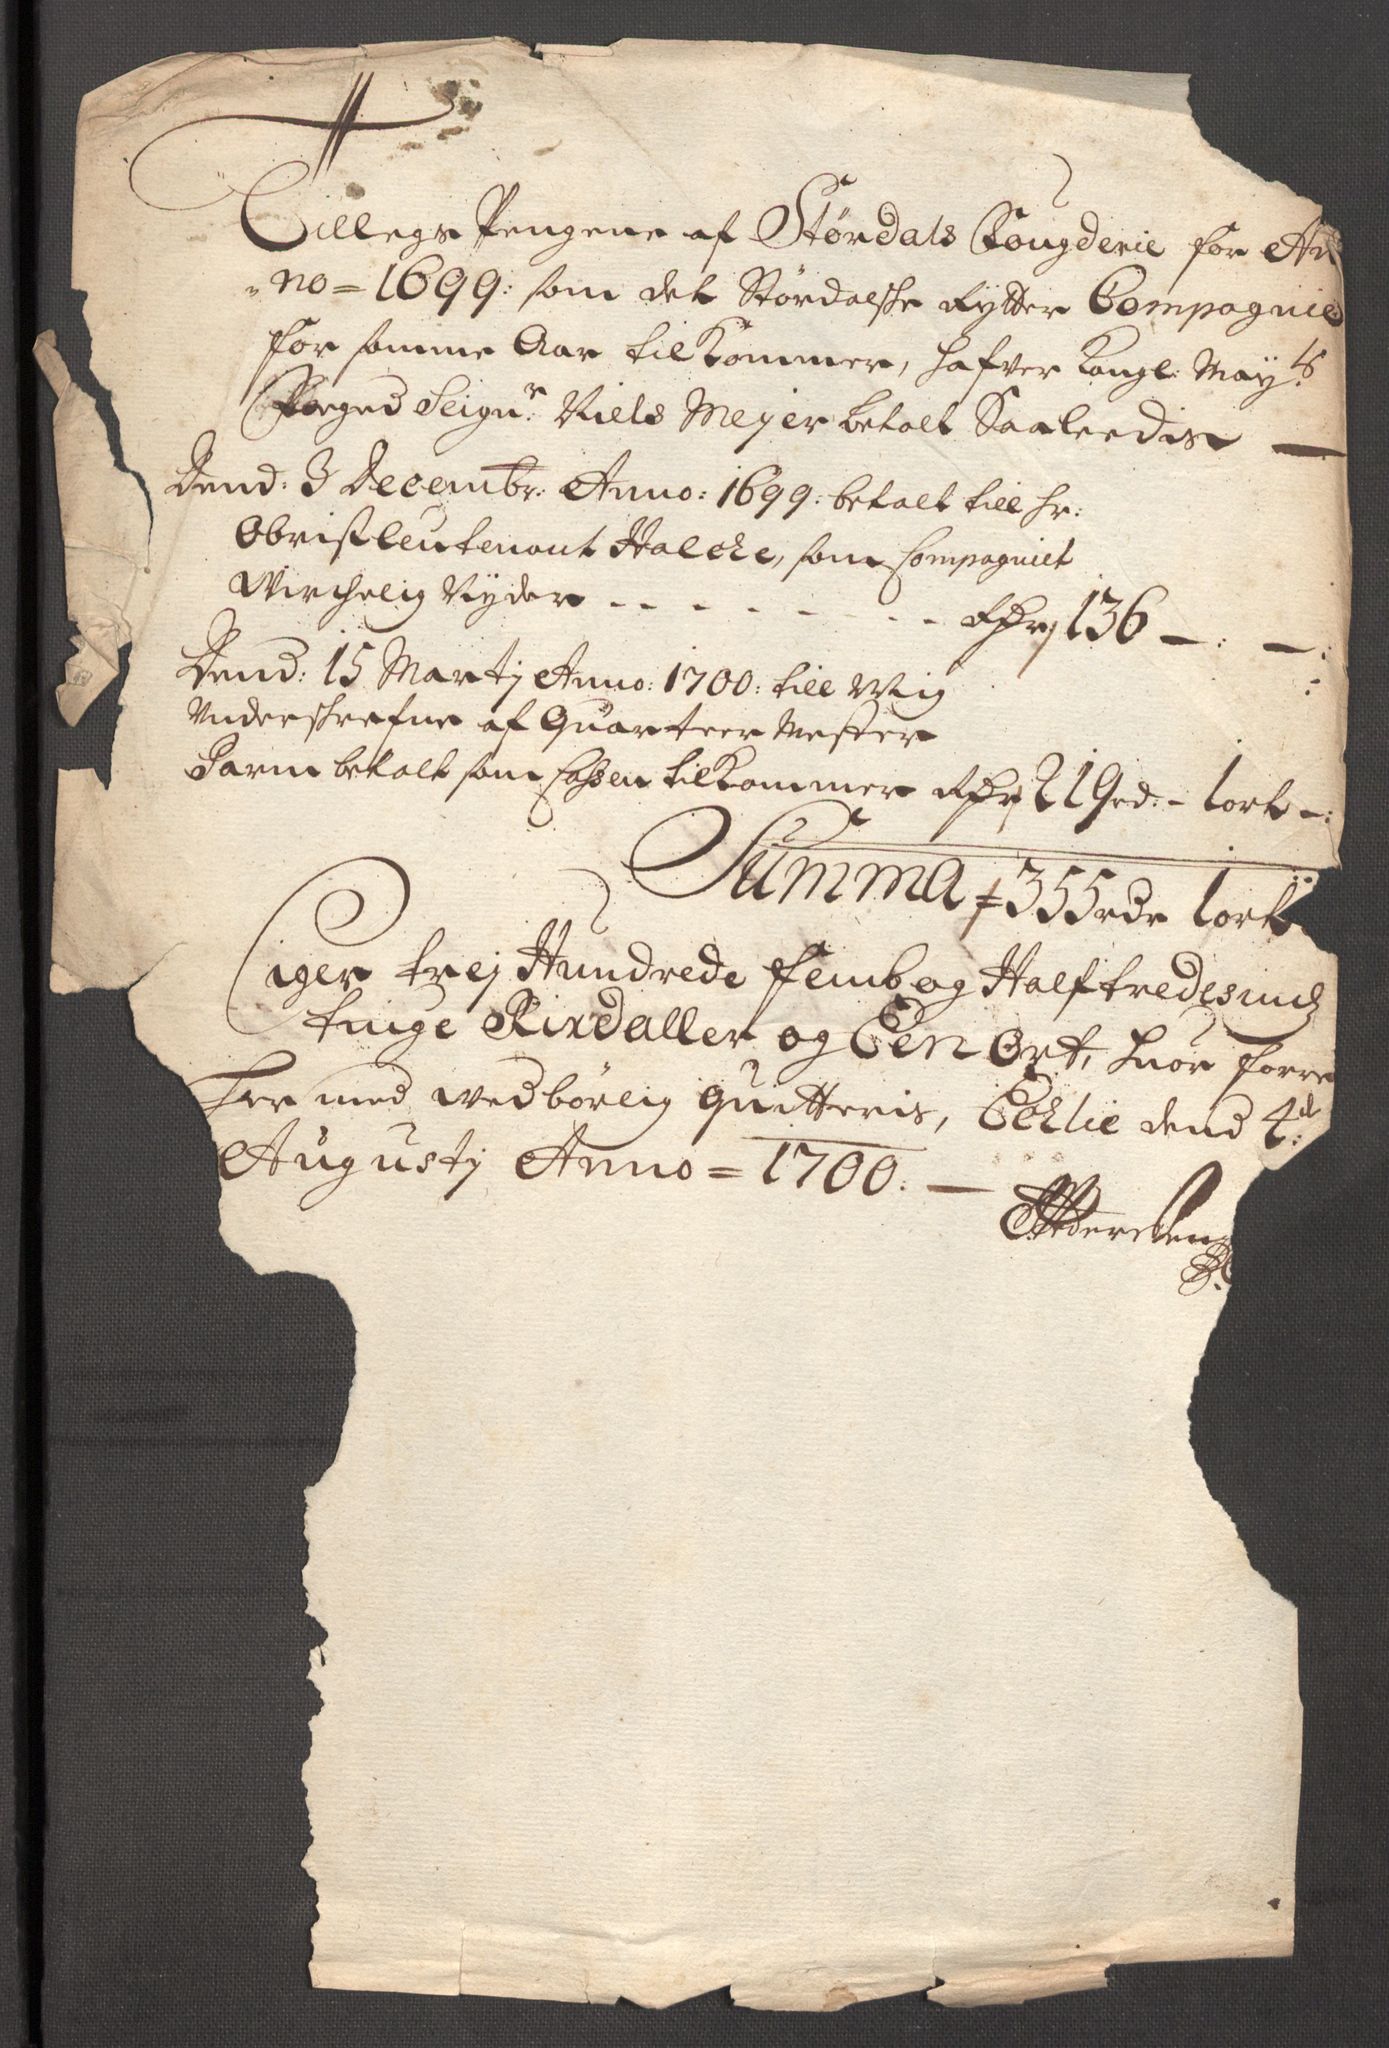 Tillegs Pengene af Størdals Fougderie for An
no = 1699: som det Størdalske Rytter Compagnie
for samme Aar tilkommer, hafver Kongl: Mayts
Foged Seignr: Niels Mejer betalt Saaleedis
Dend: 3 Decembr: Anno: 1699: betalt till Hr:
Obristleutenant Halcke, som Compagniet
Wirchelig Nyder - - - - - - - Rdr 136 - : - :
Dend: 15 Martj Anno: 1700: till Mig
Underskrefne af Quarteer Mester
Darm betalt som tilkommer Rdr 219 rd: - 1 ort - :
Summa 355 rdr 1 ort
Siger trej Hundrede femb og Halftredesinds
tiuge Rixdaller og Een Ort, huor forre
her med wedbørlig Quitteris, Echlie dend 4de:
Augustj Anno = 1700. -